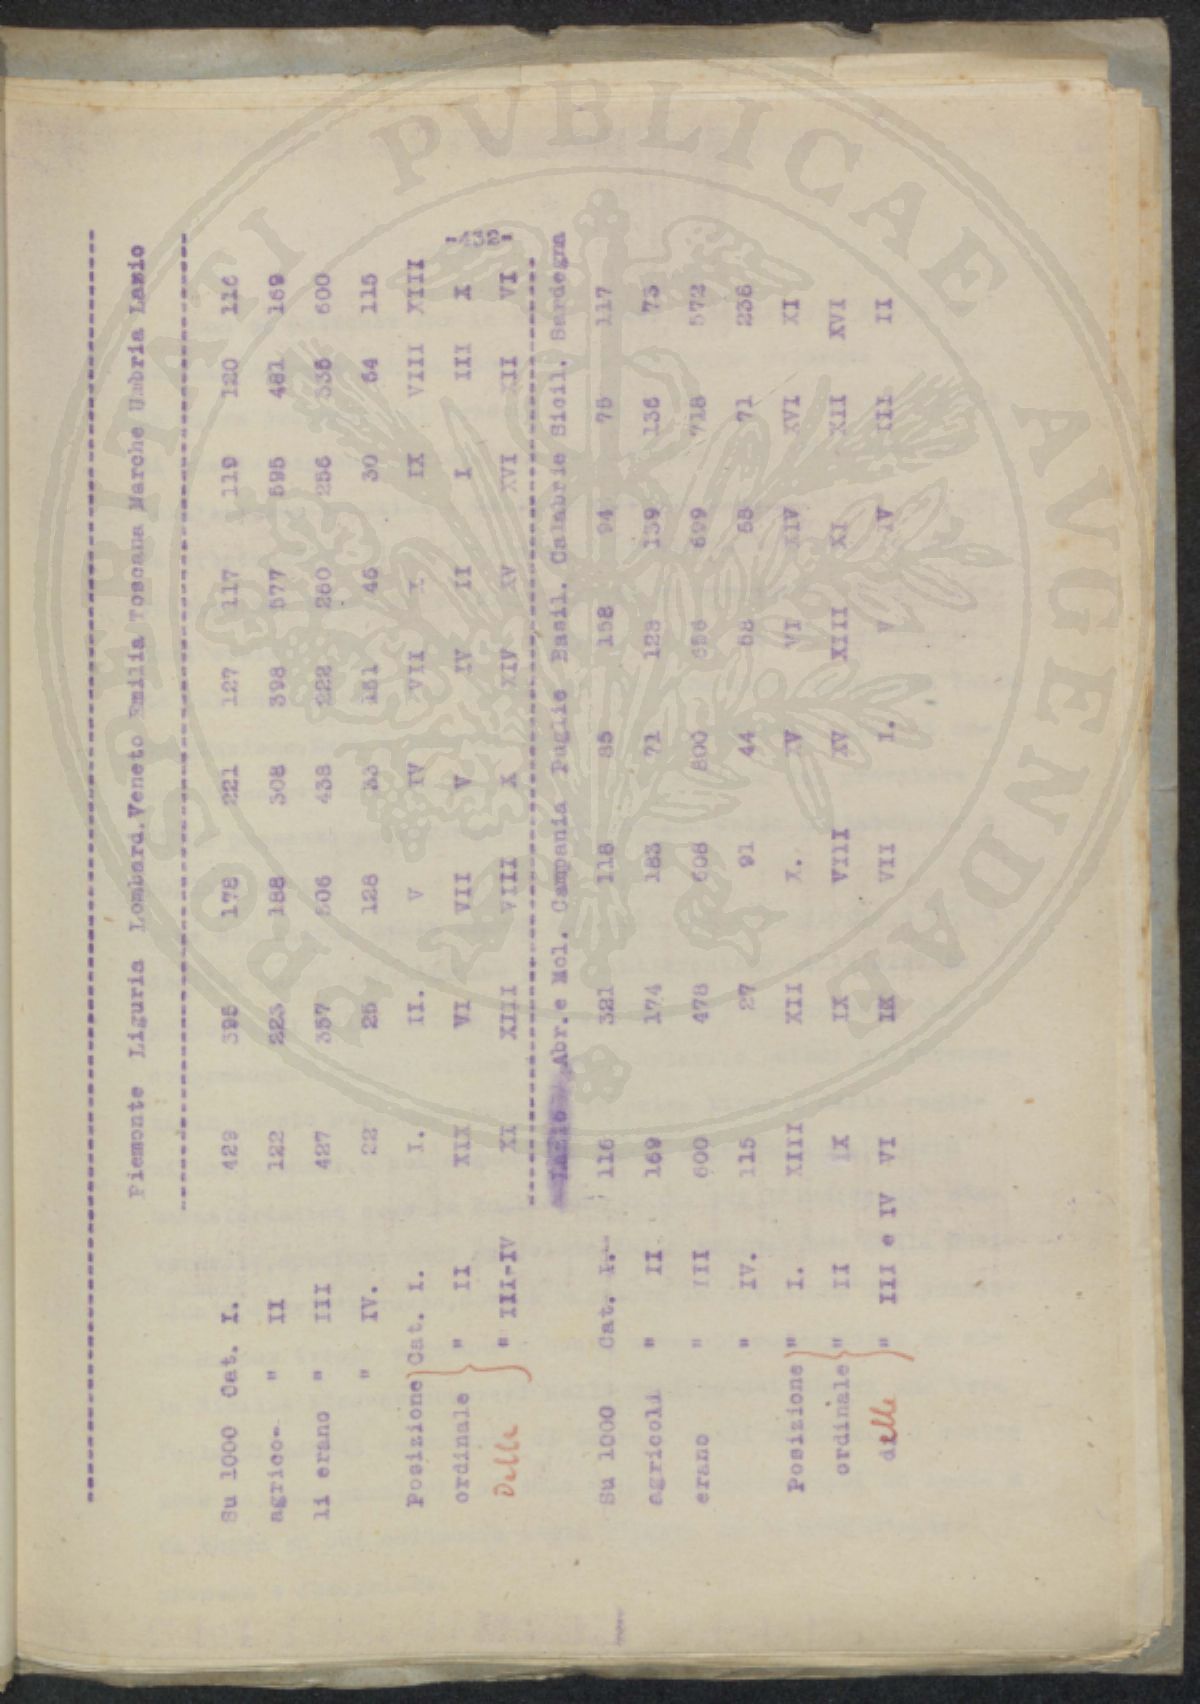 Piemonte Liguria Lombard. Veneto Emilia Toscana Marche Umbria Lazio
Su 1000 Cat. I. 429 395 178 221 127 117 119 120 116
agrico- " II 122 223 188 308 398 577 595 481 169
li erano " III 427 357 506 438 222 260 256 335 600
" IV. 22 25 128 33 151 46 30 64 115
Posizione Cat. I. I. II. V IV VII X IX VIII XIII
ordinale " II XIX VI VII V IV II I III X
Delle " III-IV XI XIII VIII X XIV XV XVI XII VI
Lazio Abr. e Mol. Campania Puglie Basil. Calabrie Sicil. Sardegna
Su 1000 Cat. I. 116 321 118 85 158 94 75 117
agricoli " II 169 174 183 71 128 139 136 73
erano " III 600 478 608 800 656 699 718 572
" IV. 115 27 91 44 58 68 71 236
Posizione " I. XIII XII X. XV VI XIV XVI XI
ordinale " II IX IX VIII XV XIII XI XII XVI
delle " III e IV VI IX VII I. V IV III II
PROSPERITATI PVBLICAE AVGENDAE